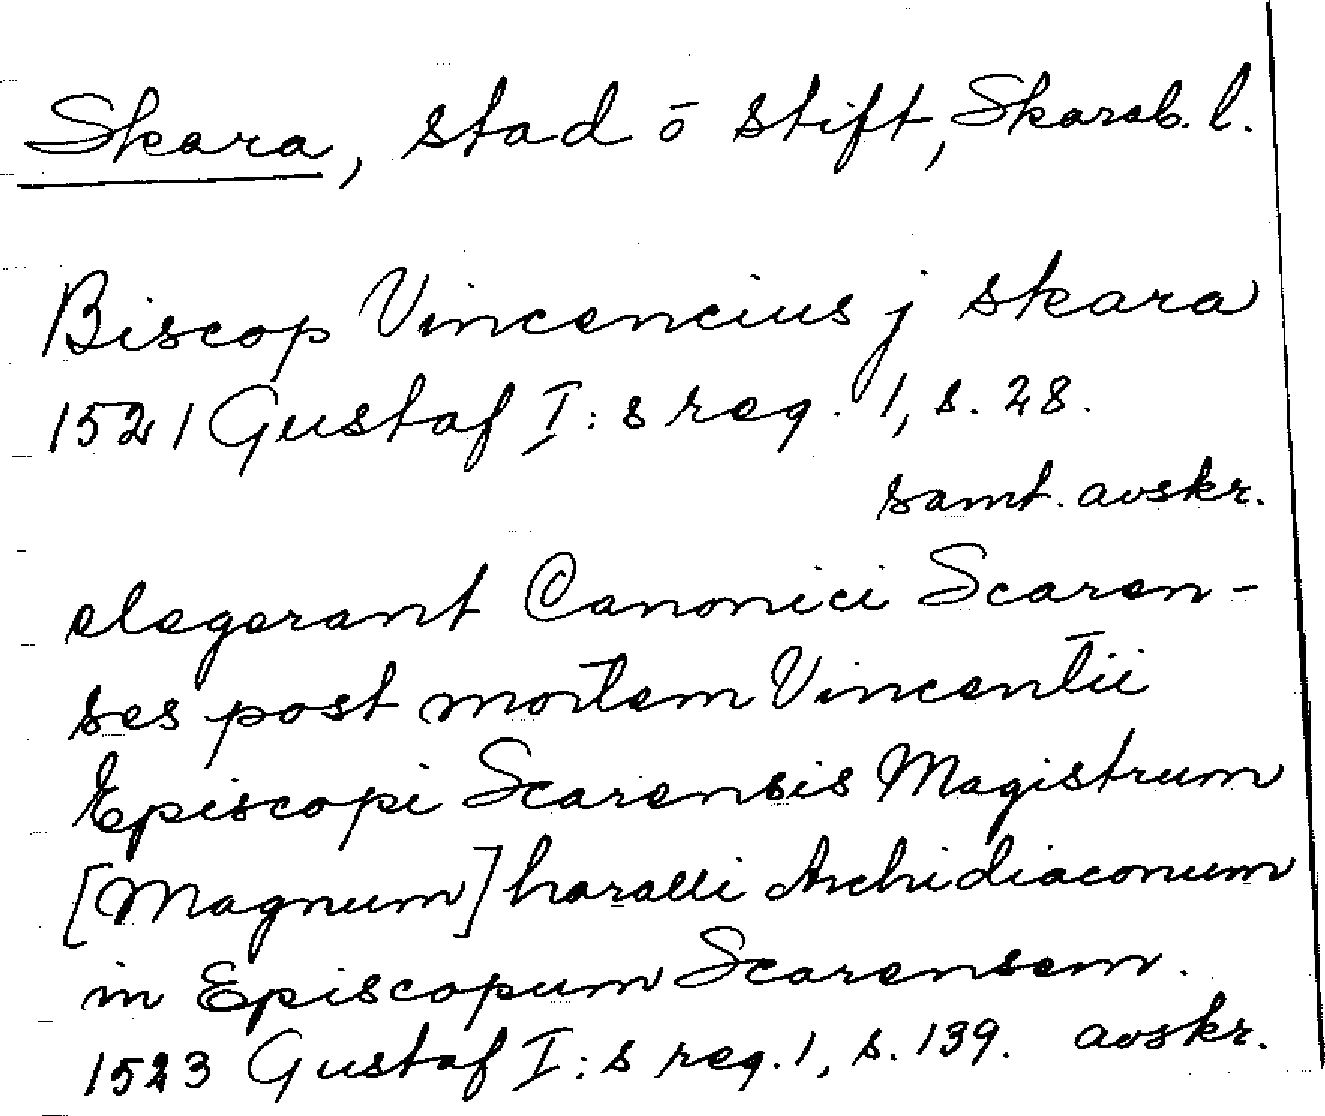 Skara, stad ō stift, Skarab. l.
Biscop Vincencius j skara
1521 Gustaf I:s reg. 1, s. 28.
samt. avskr.
elegerant Canonici Scaren-
ses post mortem Vincentii
Episcopi Scarensis Magistrum
[Magnum] haralli Archidiaconum
in Episcopum Scarensem.
1523 Gustaf I:s reg. 1, s. 139. avskr.